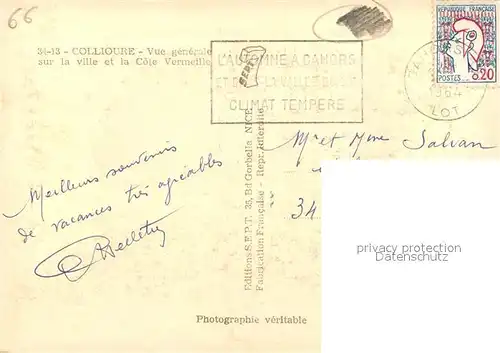 66
34-13 - COLLIOURE - Vue générale
sur la ville et la Côte Vermeille
L'AUTOMNE A CAHORS
CLIMAT TEMPERE
REPUBLIQUE FRANÇAISE
POSTES
0,20
1964
LOT
Mr et Mme Salvan
34
Meilleurs souvenirs
de vacances très agréables
Editions S.E.P.T. 35, Bd Gorbella NICE
Fabrication Française - Repr. Interdite
Photographie véritable
privacy protection
Datenschutz